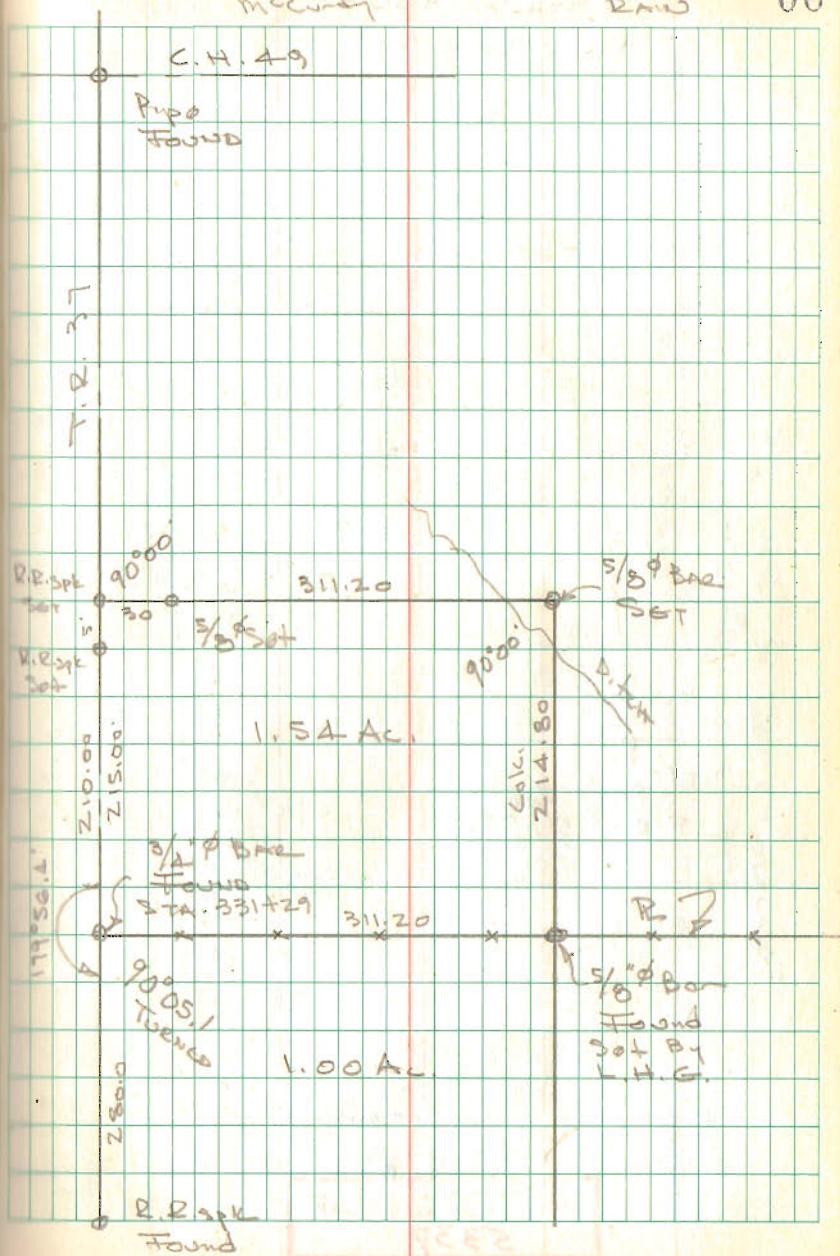 McCurdy RAIN 60
C.H. 49
Pipe
FOUND
T.R. 37
R.R.spk
Set
90°00'
30
5/8"φ Set
311.20
5/8"φ BAR
SET
5'
R.R.spk
Set
90°00'
Ditch
1.54 Ac.
210.00
215.00
Calc.
214.80
3/4"φ BAR
FOUND
STA. 331+29
311.20
179°56.4'
90°05.1
TURNED
5/8"φ Bar
Found
Set By
L.H.G.
1.00 Ac.
280.0
R.R.spk
Found